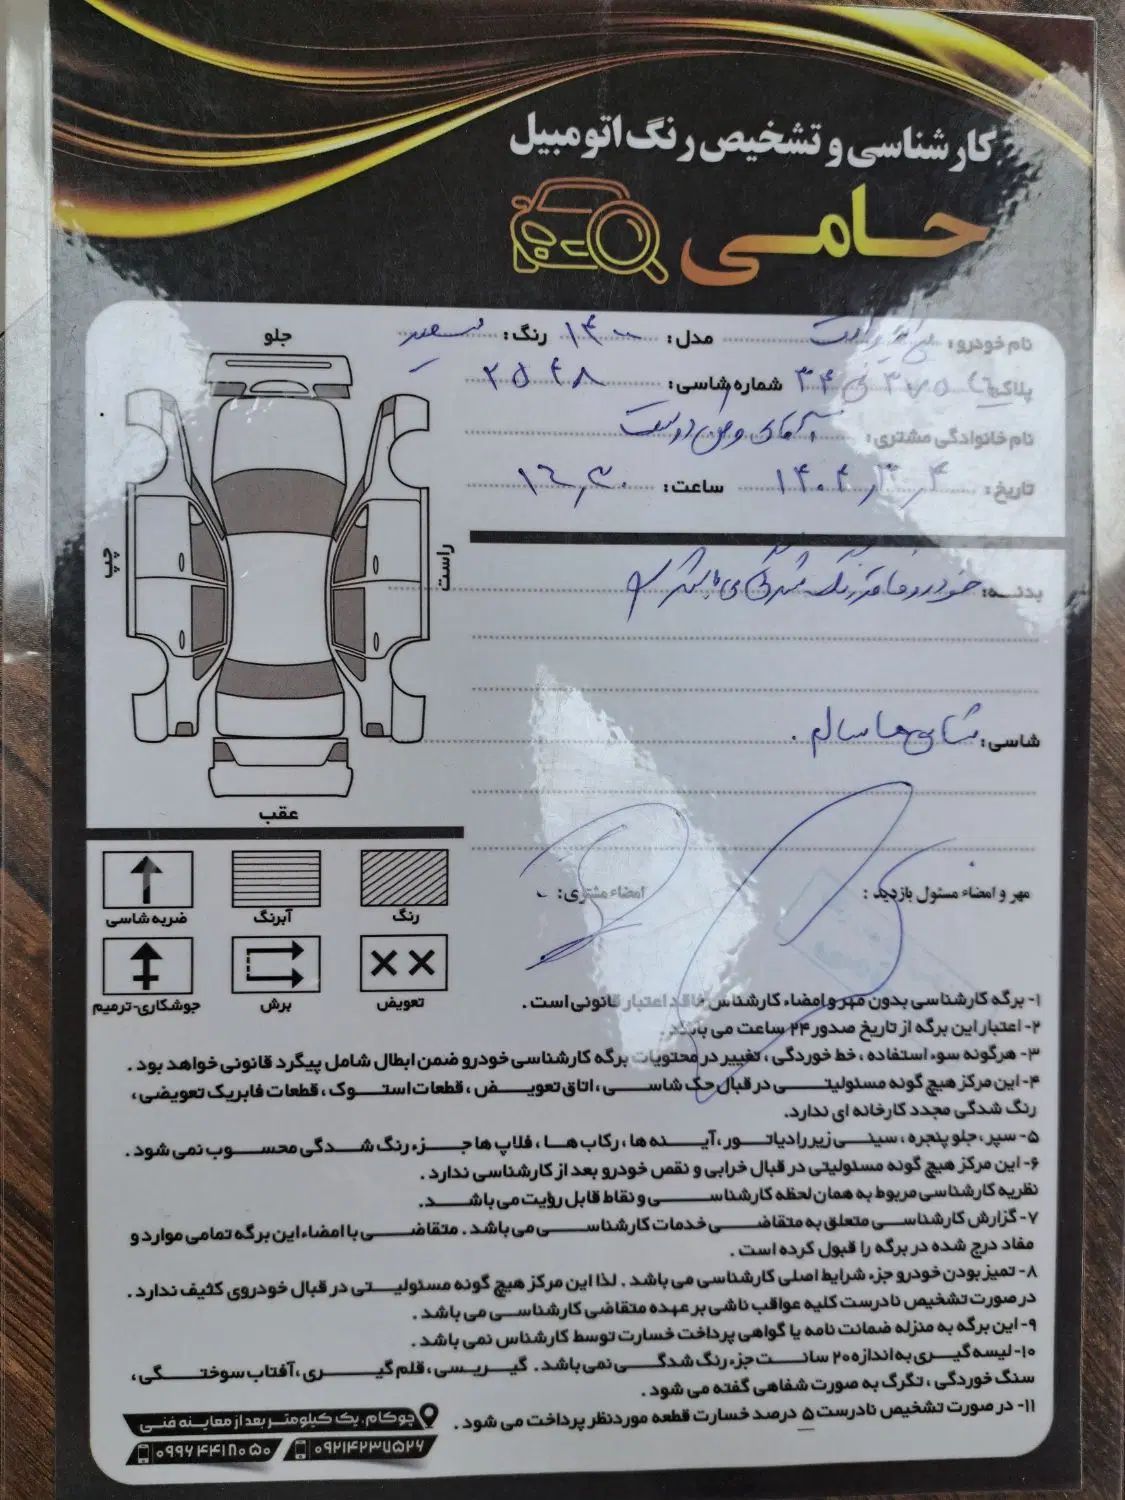 کارشناسی و تشخیص رنگ اتومبیل
حامی
نام خودرو: مدل: ۱۴۰۰ رنگ: سفید
پلاک: شماره شاسی: ۲۵۴۸
نام خانوادگی مشتری: آقای وطن دوست
تاریخ: ۱۴۰۴٫۳٫۴ ساعت: ۱۶٫۳۰
جلو
چپ
راست
عقب
بدنه: خودرو فاقد رنگ شدگی می باشد
شاسی: شاسی ها سالم .
مهر و امضاء مسئول بازدید : امضاء مشتری:
رنگ
آبرنگ
ضربه شاسی
تعویض
برش
جوشکاری-ترمیم
۱- برگه کارشناسی بدون مهر و امضاء کارشناس فاقد اعتبار قانونی است .
۲- اعتبار این برگه از تاریخ صدور ۲۴ ساعت می باشد .
۳- هرگونه سوء استفاده ، خط خوردگی ، تغییر در محتویات برگه کارشناسی خودرو ضمن ابطال شامل پیگرد قانونی خواهد بود .
۴- این مرکز هیچ گونه مسئولیتی در قبال حک شاسی ، اتاق تعویض ، قطعات استوک ، قطعات فابریک تعویضی ،
رنگ شدگی مجدد کارخانه ای ندارد.
۵- سپر ، جلو پنجره ، سینی زیر رادیاتور ، آینه ها ، رکاب ها ، فلاپ ها جزء رنگ شدگی محسوب نمی شود .
۶- این مرکز هیچ گونه مسئولیتی در قبال خرابی و نقص خودرو بعد از کارشناسی ندارد .
نظریه کارشناسی مربوط به همان لحظه کارشناسی و نقاط قابل رؤیت می باشد.
۷- گزارش کارشناسی متعلق به متقاضی خدمات کارشناسی می باشد . متقاضی با امضاء این برگه تمامی موارد و
مفاد درج شده در برگه را قبول کرده است .
۸- تمیز بودن خودرو جزء شرایط اصلی کارشناسی می باشد . لذا این مرکز هیچ گونه مسئولیتی در قبال خودروی کثیف ندارد .
در صورت تشخیص نادرست کلیه عواقب ناشی بر عهده متقاضی کارشناسی می باشد .
۹- این برگه به منزله ضمانت نامه یا گواهی پرداخت خسارت توسط کارشناس نمی باشد .
۱۰- لیسه گیری به اندازه ۲۰ سانت جزء رنگ شدگی نمی باشد . گیریسی ، قلم گیری ، آفتاب سوختگی ،
سنگ خوردگی ، تگرگ به صورت شفاهی گفته می شود .
۱۱- در صورت تشخیص نادرست ۵ درصد خسارت قطعه مورد نظر پرداخت می شود .
چوکام، یک کیلومتر بعد از معاینه فنی
۰۹۲۱۴۲۳۷۵۲۶
۰۹۹۶۴۴۱۸۰۵۰